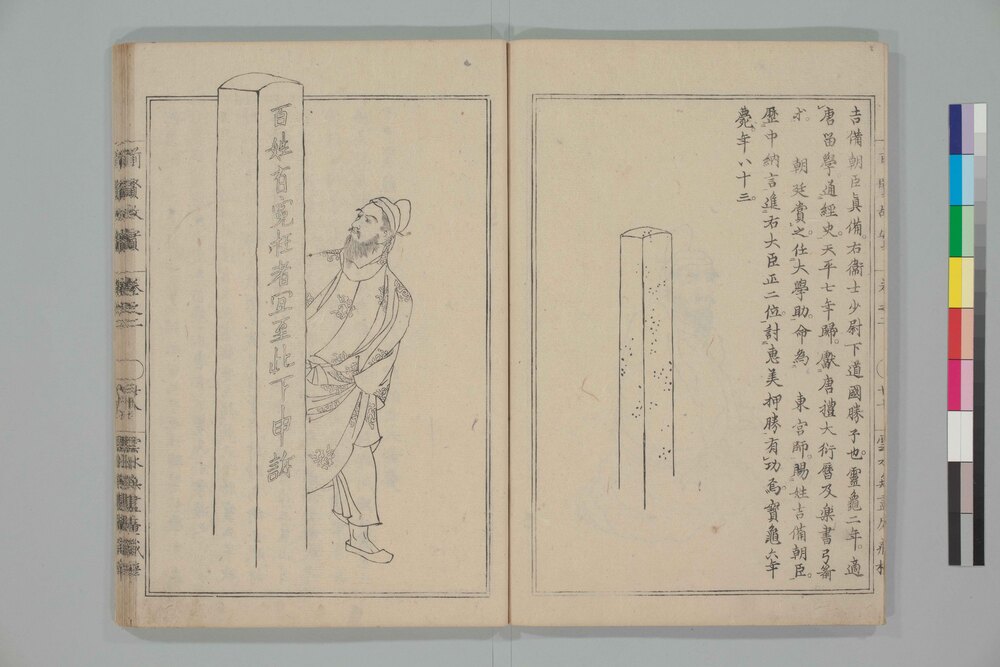 吉備朝臣眞備。右衞士少尉下道國勝子也。靈龜二年。適
唐畱學通經史。天平七年歸。獻唐禮大衍曆及楽書弓箭
才。朝廷賞之。仕大學助命為東宮師。賜姓吉備朝臣。
歷中納言進右大臣正二位。討惠美押勝有功焉。寶龜六年
薨。年八十三。
百姓有冤枉者宜至此下申訴